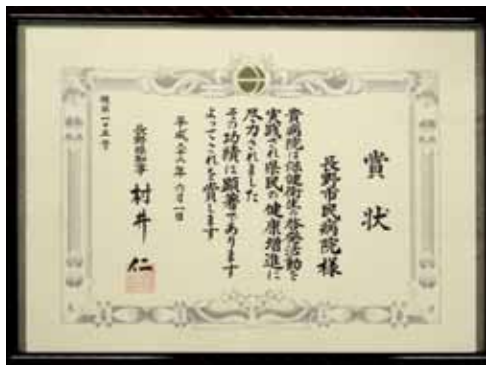 賞状
長野市民病院様
貴病院は保健衛生の啓発活動を
実践され県民の健康増進に
尽力されました
その功績は顕著であります
よってこれを賞します
平成二十二年六月一日
長野県知事 村井 仁